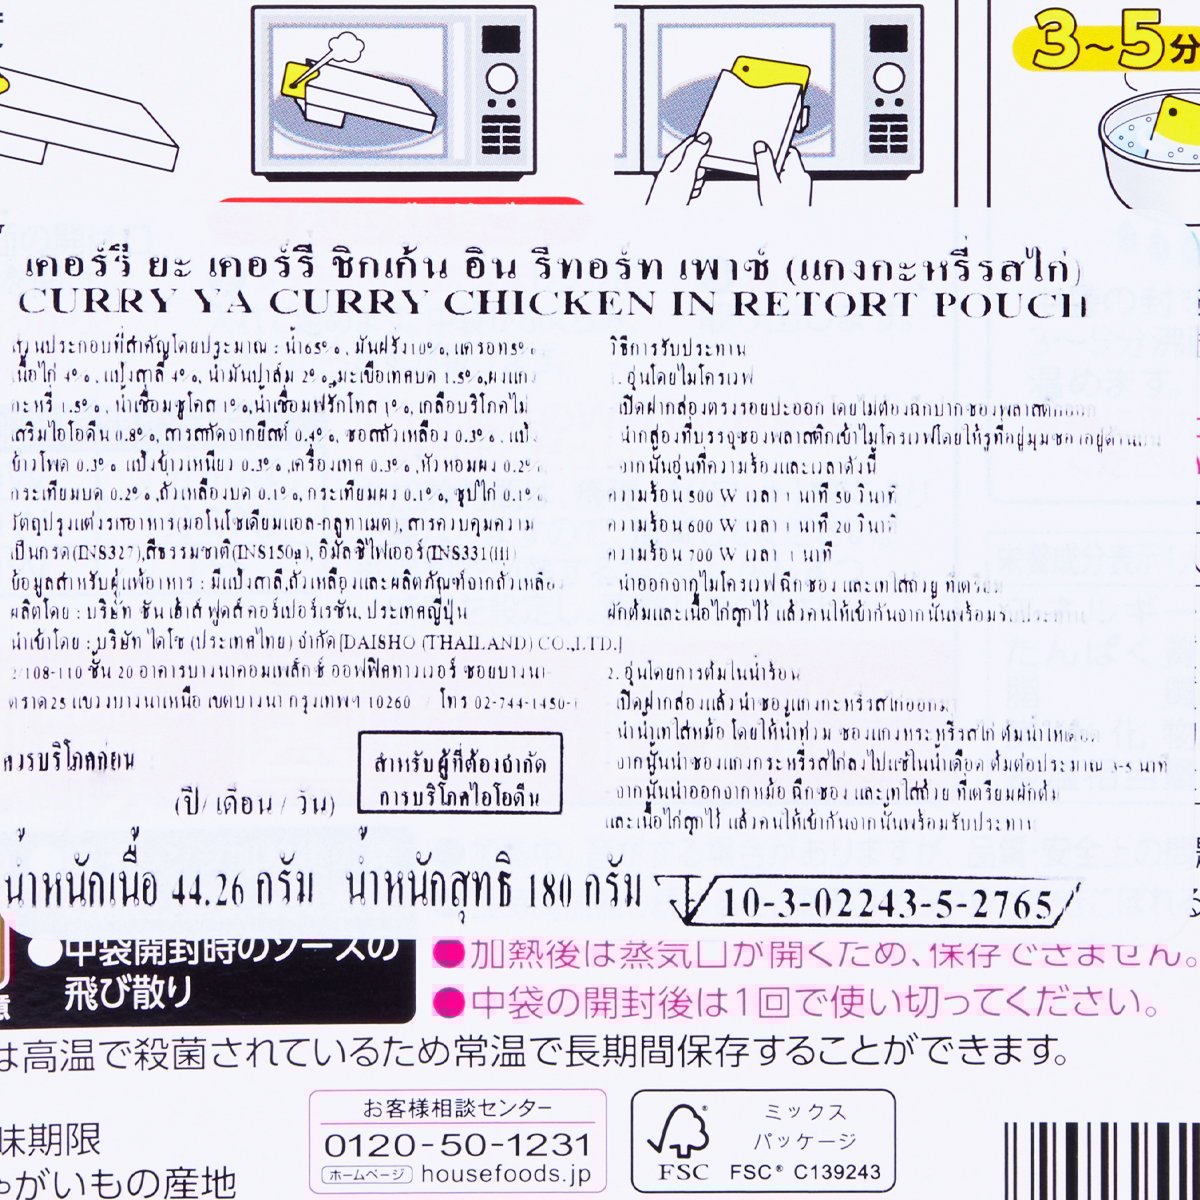 3~5分
เคอร์รี่ ยะ เคอร์รี่ ชิกเก้น อิน รีทอร์ท เพาซ์ (แกงกะหรี่รสไก่)
CURRY YA CURRY CHICKEN IN RETORT POUCH
ส่วนประกอบที่สำคัญโดยประมาณ : น้ำ 65%, มันฝรั่ง 10%, แครอท 5%,
เนื้อไก่ 4%, แป้งสาลี 4%, น้ำมันปาล์ม 2%, มะเขือเทศบด 1.5%, ผงแกง
กะหรี่ 1.5%, น้ำเชื่อมซูโคส 1%, น้ำเชื่อมฟรักโทส 1%, เกลือบริโภคไม่
เสริมไอโอดีน 0.8%, สารสกัดจากยีสต์ 0.4%, ซอสถั่วเหลือง 0.3%, แป้ง
ข้าวโพด 0.3% แป้งข้าวเหนียว 0.3%, เครื่องเทศ 0.3%, หัวหอมผง 0.2%,
กระเทียมบด 0.2%, ถั่วเหลืองบด 0.1%, กระเทียมผง 0.1%, ซุปไก่ 0.1%
วัตถุปรุงแต่งรสอาหาร(มอโนโซเดียมแอล-กลูทาเมต), สารควบคุมความ
เป็นกรด(INS327), สีธรรมชาติ(INS150a), อิมัลซิไฟเออร์(INS331(III)
ข้อมูลสำหรับผู้แพ้อาหาร : มีแป้งสาลี,ถั่วเหลืองและผลิตภัณฑ์จากถั่วเหลือง
ผลิตโดย : บริษัท ซัน เฮ้าส์ ฟูดส์ คอร์เปอร์เรชั่น, ประเทศญี่ปุ่น
นำเข้าโดย : บริษัท ไดโซ (ประเทศไทย) จำกัด[DAISHO (THAILAND) CO.,LTD.]
2/108-110 ชั้น 20 อาคารบางนาคอมเพล็กซ์ ออฟฟิคทาวเวอร์ ซอยบางนา-
ตราด25 แขวงบางนาเหนือ เขตบางนา กรุงเทพฯ 10260 / โทร 02-744-1450-1
ควรบริโภคก่อน :
(ปี / เดือน / วัน)
สำหรับผู้ที่ต้องจำกัด
การบริโภคไอโอดีน
วิธีการรับประทาน
1. อุ่นโดยไมโครเวฟ
เปิดฝากล่องตรงรอยปะออก โดยไม่ต้องฉีกปากซองพลาสติกออก
นำกล่องที่บรรจุซองพลาสติกเข้าไมโครเวฟโดยให้รูที่อยู่มุมซองอยู่ด้านบน
จากนั้นอุ่นที่ความร้อนและเวลาดังนี้
ความร้อน 500 W เวลา 1 นาที 50 วินาที
ความร้อน 600 W เวลา 1 นาที 20 วินาที
ความร้อน 700 W เวลา 1 นาที
- นำออกจากไมโครเวฟ ฉีกซอง และเทใส่ถ้วย ที่เตรียม
ผักต้มและเนื้อไก่สุกไว้ แล้วคนให้เข้ากันจากนั้นพร้อมรับประทาน
2. อุ่นโดยการต้มในน้ำร้อน
เปิดฝากล่องแล้วนำซองแกงกะหรี่รสไก่ออกมา
นำน้ำเทใส่หม้อ โดยให้น้ำท่วม ซองแกงหระหรี่รสไก่ ต้มน้ำให้เดือด
จากนั้นนำซองแกงกระหรี่รสไก่ลงไปแช่ในน้ำเดือด ต้มต่อประมาณ 3-5 นาที
จากนั้นนำออกจากหม้อ ฉีกซอง และเทใส่ถ้วย ที่เตรียมผักต้ม
และเนื้อไก่สุกไว้ แล้วคนให้เข้ากันจากนั้นพร้อมรับประทาน
น้ำหนักเนื้อ 44.26 กรัม น้ำหนักสุทธิ 180 กรัม
10-3-02243-5-2765
●中袋開封時のソースの
飛び散り
●加熱後は蒸気口が開くため、保存できません。
●中袋の開封後は1回で使い切ってください。
は高温で殺菌されているため常温で長期間保存することができます。
味期限
ゃがいもの産地
お客様相談センター
0120-50-1231
ホームページ housefoods.jp
FSC
ミックス
パッケージ
FSC® C139243